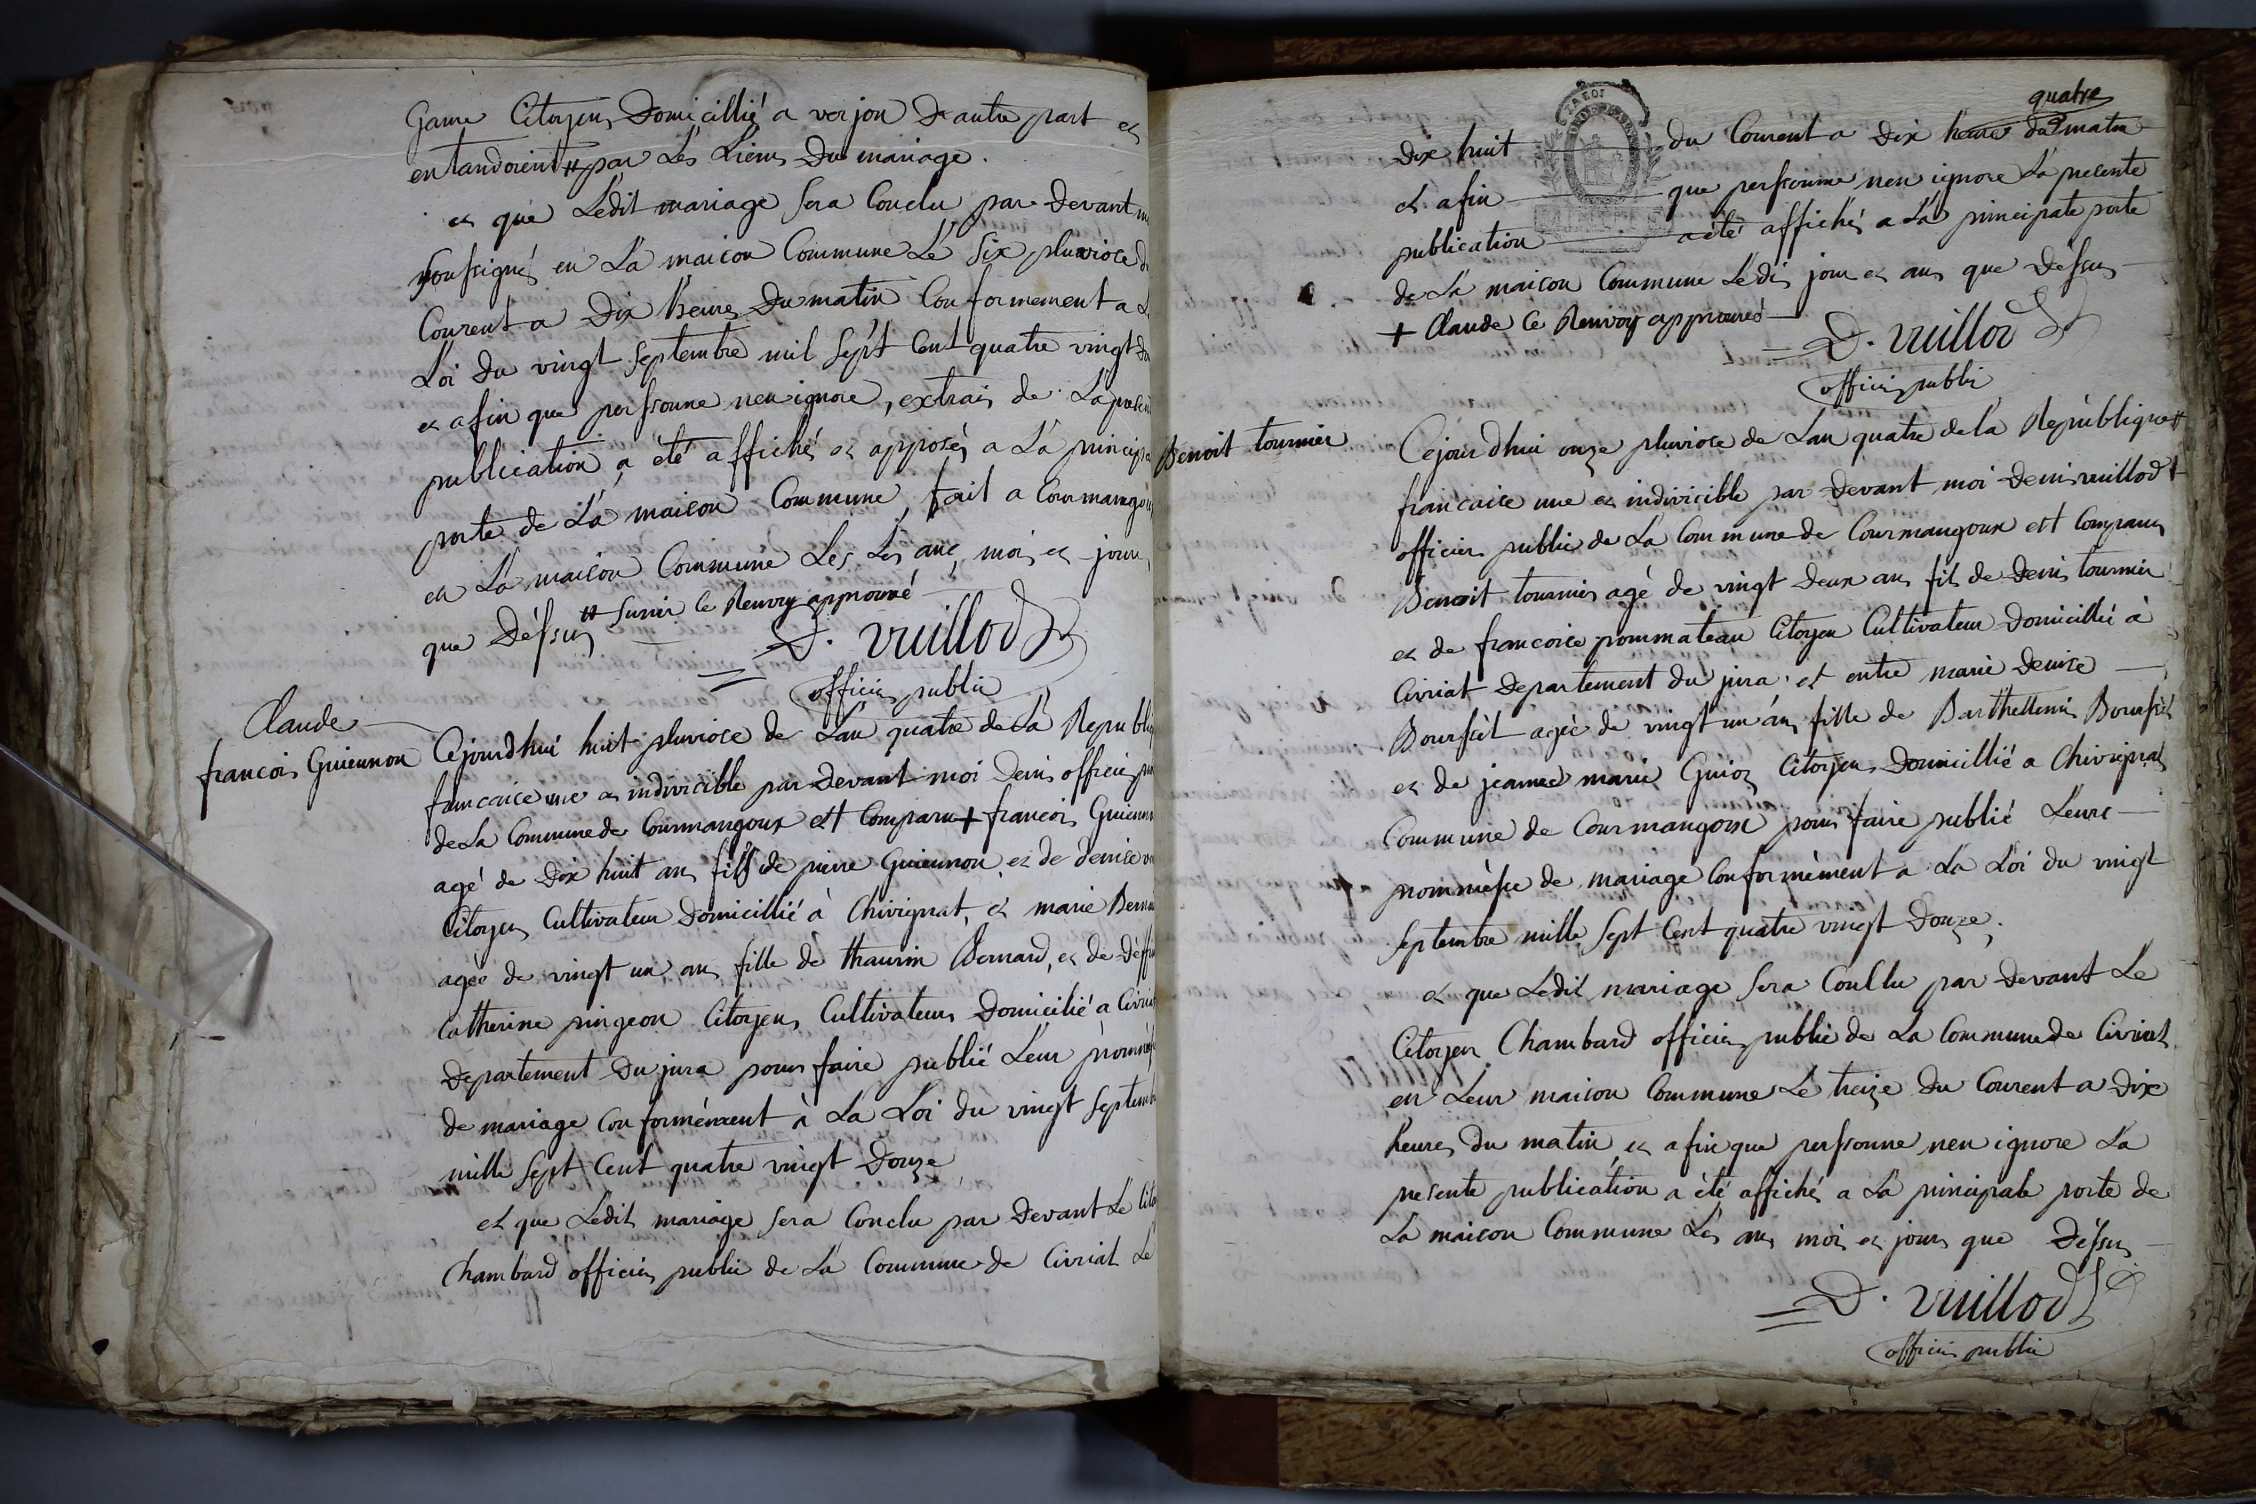 game Citoyens Domicillié a verjon D'autre part et
entandoient # par Les Liens Du mariage.
et que Ledit mariage sera Conclu par Devant
soussignés en La maison Commune Le six pluviose
Courent a Dix heures Du matin Conformement a
Loi du vingt septembre mil sept Cent quatre vingt
et afin que perssonne nen ignore, extrais de La
publication a été affiché et apposés a La
porte de La maison Commune, fait a
en La maison Commune Les Les ans, mois et jours
que Déssus # s'unir le Renvoy approuvé
D. vuillod
officier public
Claude
francois Guiennon
Cejourdhui huit pluviose de Lan quatre de La
francaise une et indivicible par Devant moi Denis officier
de La Commune de Courmangoux est Comparu + francois
agé de Dix huit ans fils de pierre Guiennon et de denise
Citoyens Cultivateurs Domicillié à Chivignat, et marie
agée de vingt un ans fille de thaurin Bernard, et de
Catherine pingeon Citoyens Cultivateurs Domicilié a
Departement Du jura pour faire publié Leur
de mariage Conformément à La Loi du vingt
mille sept Cent quatre vingt Douze
et que Ledit mariage sera Conclu par Devant Le
Chambard officier public de La Commune de Civriat Le
quatre
Dix huit du Courent a Dix heures du matin
et afin que perssonne nen ignore La presente
publication a été affiché a La principale porte
de La maison Commune Ledis jour et ans que Déssus
+ Claude Le Renvoy approuvés
D. vuillod
officier public
Benoit tournier
Cejourdhui onze pluviose de Lan quatre de La République #
francaise une et indivicible par Devant moi Denis vuillod +
officier public de La Commune de Courmangoux est Comparus
Benoit tournier agé de vingt Deux ans fils de Denis tournier
et de francoise pommateau Citoyen Cultivateur Domicillié à
Civriat Departement du jura et entre marie Denise
Boursset agée de vingt un ans fille de Barthellemi
et de jeanne marie Guioz Citoyens Domicillié a Chivignat
Commune de Courmangoux pour faire publié Leurs
pormiesse de mariage Conformément a La Loi du vingt
septembre mille sept Cent quatre vingt Douze,
et que Ledit mariage sera Conllu par Devant Le
Citoyen Chambard officier public de La Commune de Civriat
en Leur maison Commune Le treize Du Courent a Dix
heures Du matin, et afin que perssonne nen ignore La
presente publication a été affiché a La principale porte de
La maison Commune Les ans mois et jours que Déssus
D. vuillod
officier public